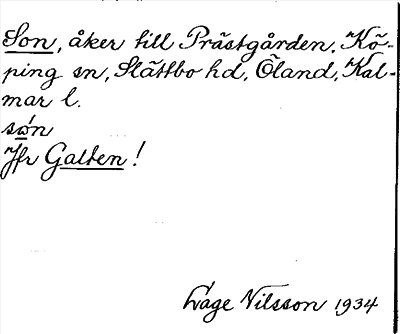 Son, åker till Prästgården, Kö-
ping sn, Slättbo hd, Öland, Kal-
mar l.
sơn
Jfr Galten!
Låge Nilsson 1934